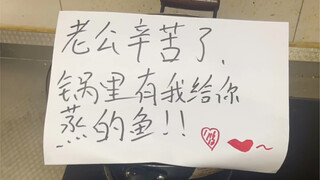 老公辛苦了,
锅里有我给你
蒸的鱼!!